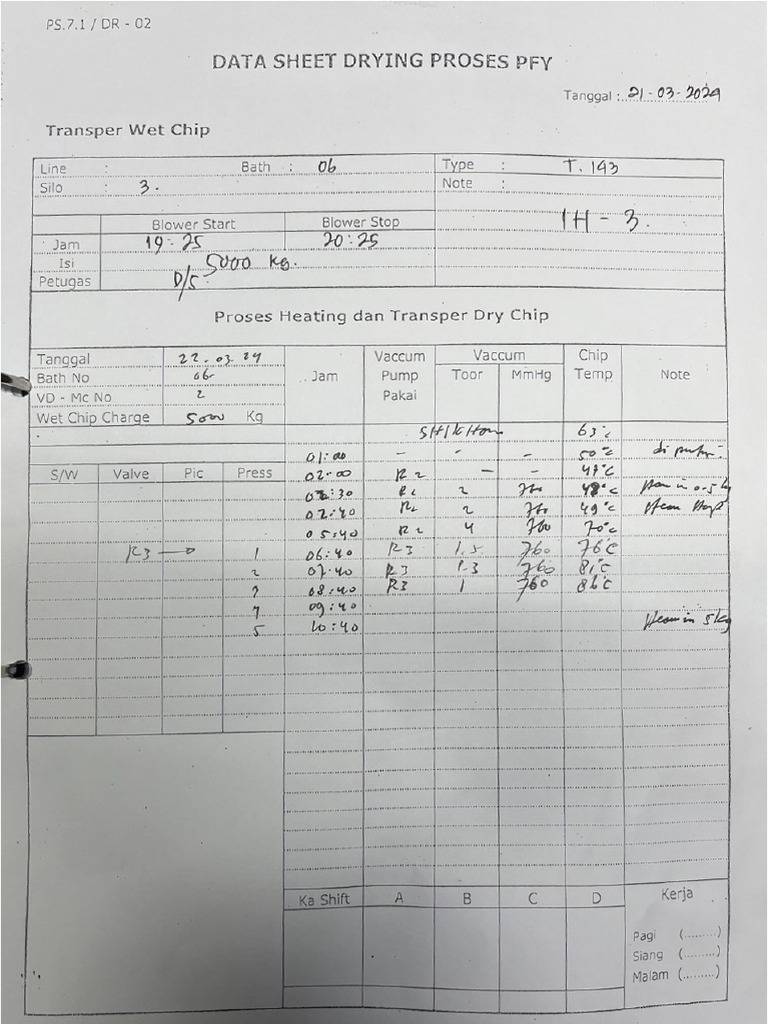 PS.7.1 / DR - 02
DATA SHEET DRYING PROSES PFY
Tanggal : 21-03-2024
Transper Wet Chip
Line : Bath : 06 Type : T. 143
Silo : 3. Note :
1H - 3.
Blower Start Blower Stop
Jam 19:25 20:25
Isi 5000 kg.
Petugas D/S
Proses Heating dan Transper Dry Chip
Tanggal 22.03.24
Bath No 06
VD - Mc No 2
Wet Chip Charge 5000 Kg
Jam Vaccum Pump Pakai Vaccum Toor MmHg Chip Temp Note
S/W Valve Pic Press
63°c
01:00 - - - 50°c
02:00 R2 - - 48°c
02:30 R2 2 760 48°c steam in 0.5 kg
02:40 R2 2 760 49°c steam stop
05:40 R2 4 760 70°c
R3 1 06:40 R3 1.5 760 76°C
2 07:40 R3 1.3 760 81°C
3 08:40 R3 1 760 86°C
4 09:40
5 10:40 steam in 5 kg
Ka Shift A B C D Kerja
Pagi (.........)
Siang (.........)
Malam (.........)